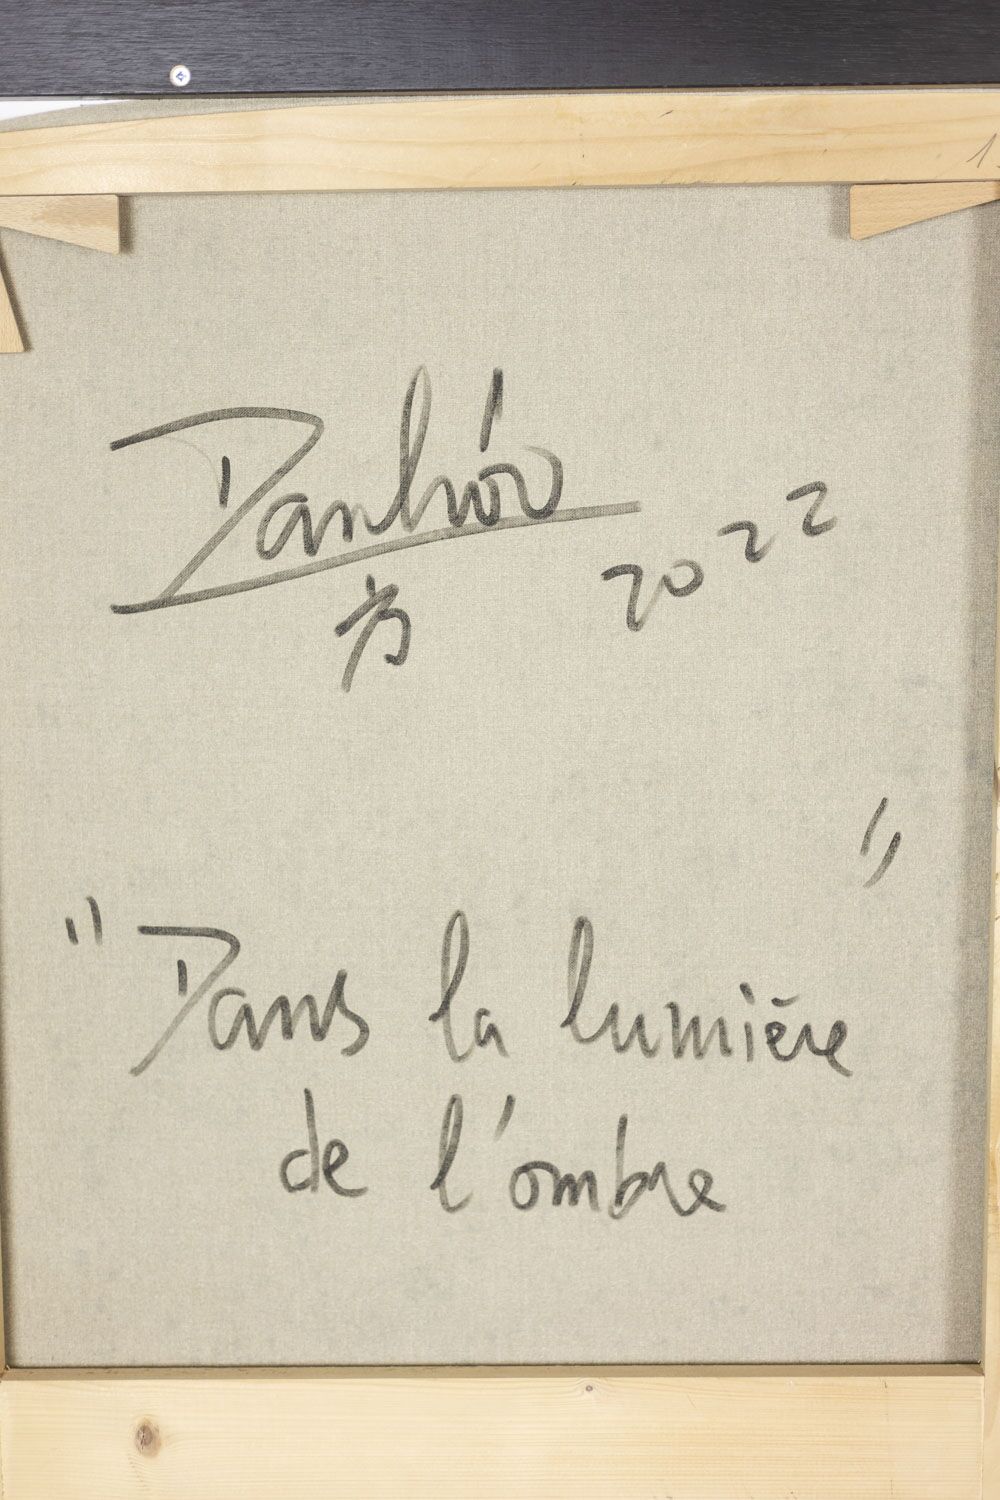 Danhôo
2022
方
" Dans la lumière "
de l'ombre